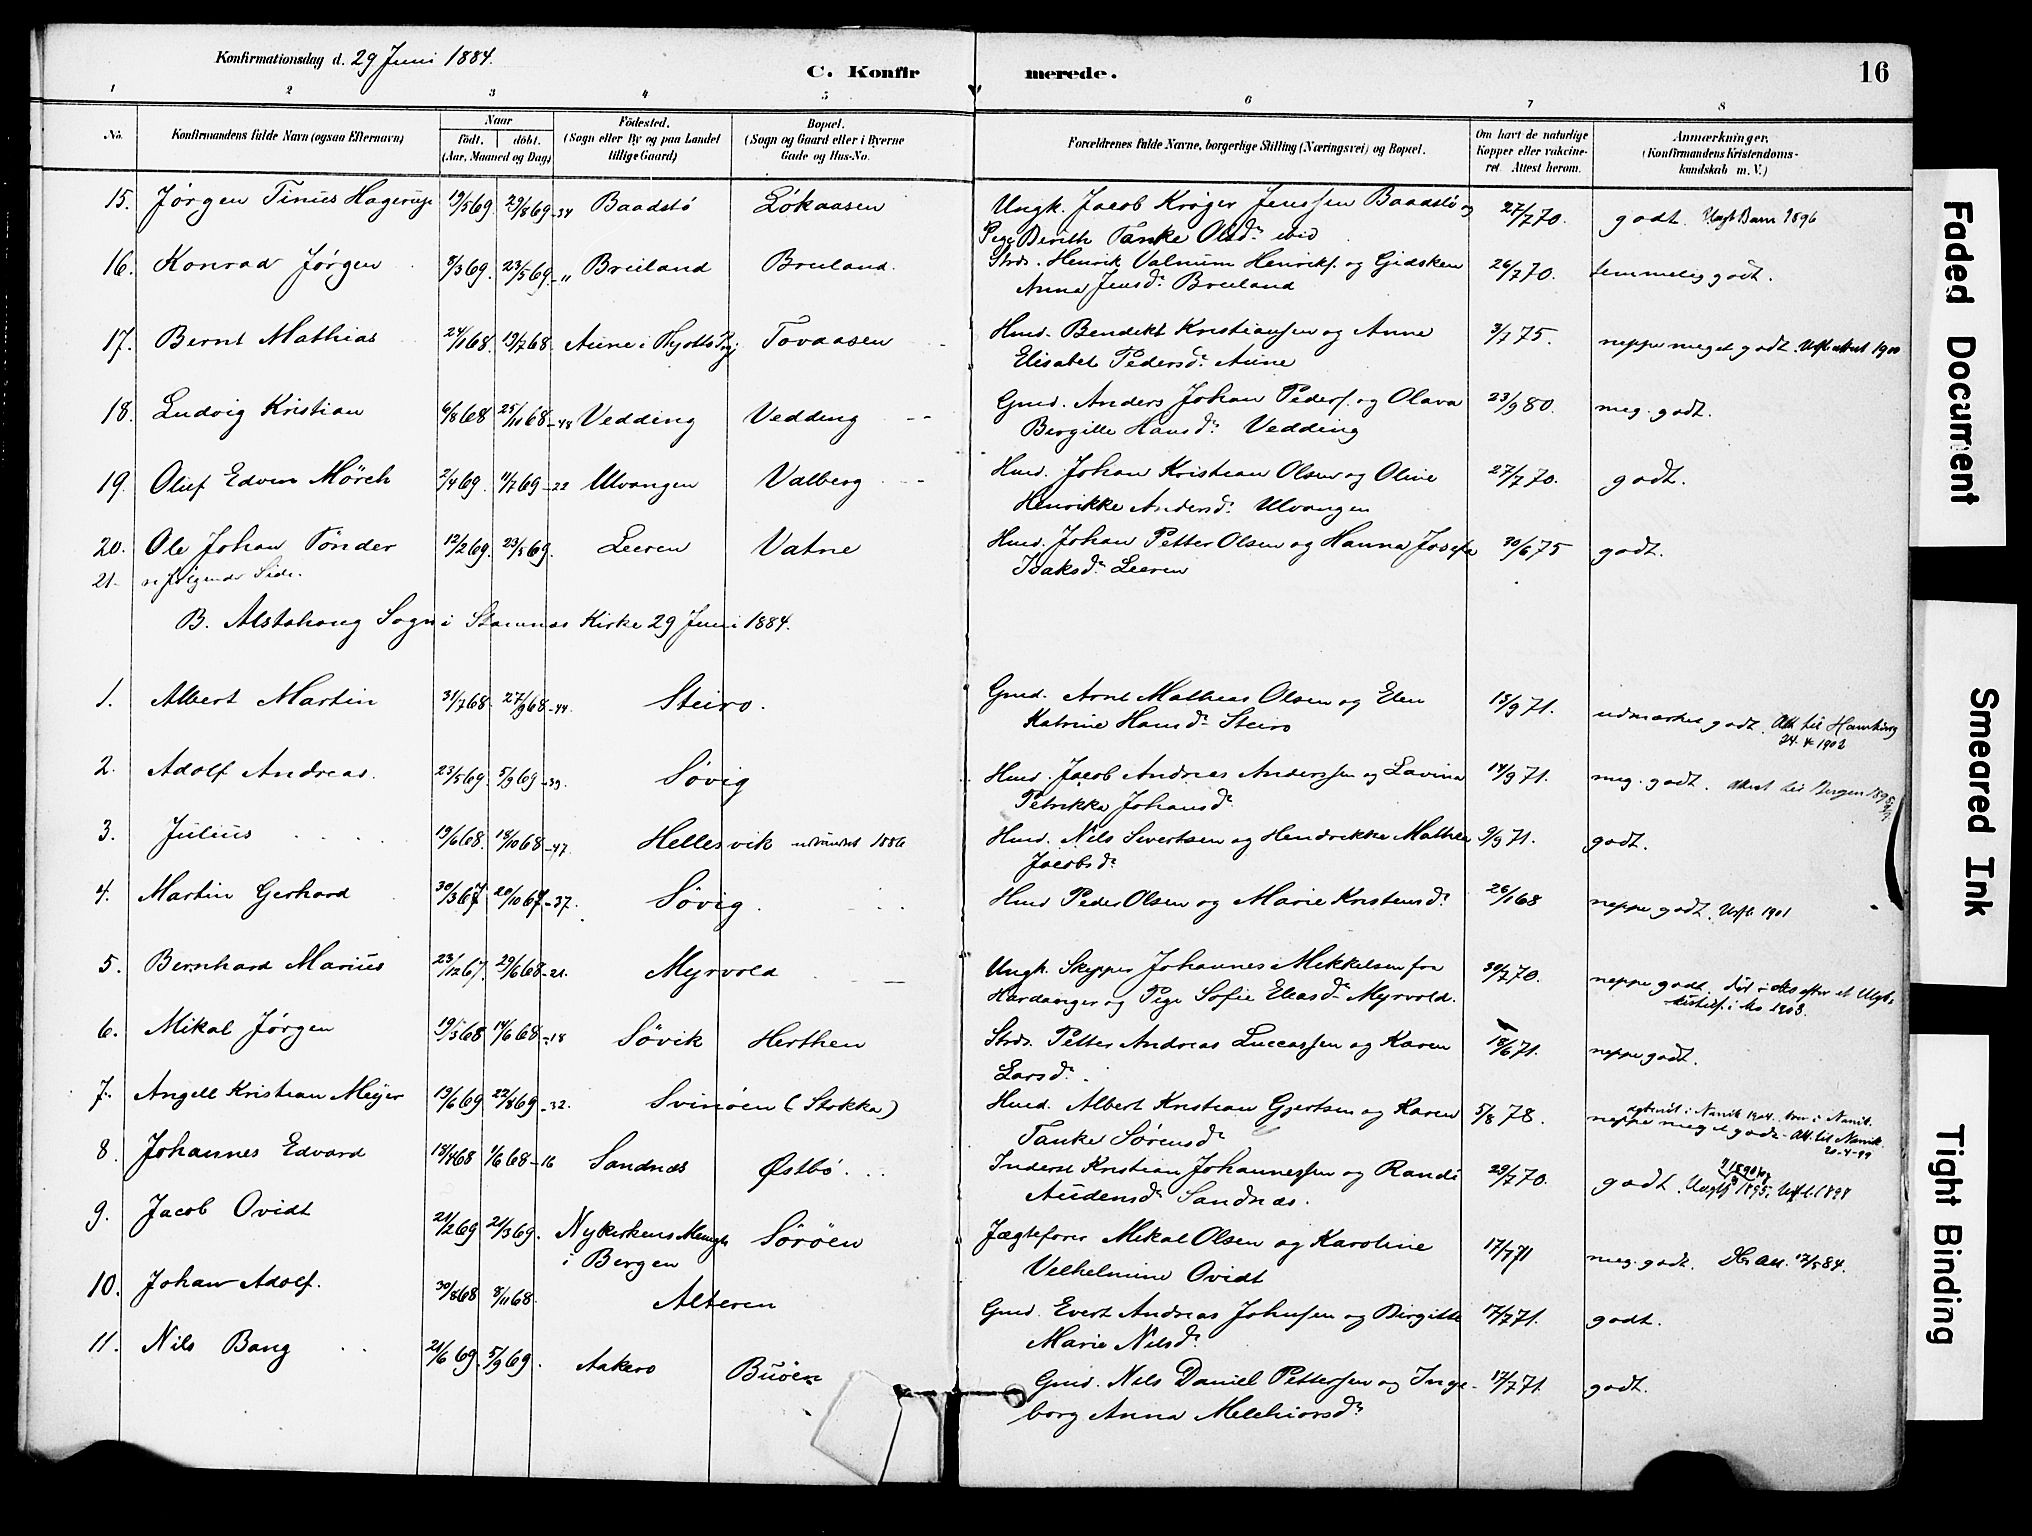 Konfirmationsdag d. 29 Juni 1884.
C. Konfirmerede.
16
1 2 3 4 5 6 7 8
No.
Konfirmandens fulde Navn (ogsaa Efternavn)
Naar
født. døbt.
(Aar, Maaned og Dag)
Fødested.
(Sogn eller By og paa Landet
tillige Gaard)
Bopæl.
(Sogn og Gaard eller i Byerne
Gade og Hus-No.
Forældrenes fulde Navne, borgerlige Stilling (Næringsvei) og Bopæl.
Om havt de naturlige
Kopper eller vakcine-
ret. Attest herom.
Anmærkninger.
(Konfirmandens Kristendoms-
kundskab m. V.)
15. Jørgen Tinus Hagerup 19/5 69. 29/8 69-34 Baadstø Løkaasen Ungk. Jacob Krøger Jenssen Baadstø og 27/7 70. godt.
Pige Berith Tanke Olsdr. ibid
16. Konrad Jørgen 8/3 69. 23/5 69-„ Breiland Breiland. Strds. Henrik Valnum Henriks. og Gidsken 26/7 70. temmelig godt.
Anna Jensdr. Breiland
17. Bernt Mathias 24/1 68. 19/7 68. Aune i Tovaasen Hmd. Bendekt Kristiansen og Anne 3/7 75. neppe meget godt.
Elisabet Pedersdr. Aune
18. Ludvig Kristian 6/8 68 25/11 68-48 Vedding Vedding Gmd. Anders Johan Peders. og Olava 23/9 80. meg. godt.
Bergitte Hansdr. Vedding
19. Oluf Edvin Mörch 2/4 69. 11/7 69-22 Ulvangen Valberg Hmd. Johan Kristian Olsen og Oline 27/7 70. godt.
Henrikke Andersdr. Ulvangen
20. Ole Johan Tönder 12/2 69. 23/5 69. Leeren Vatne Hmd. Johan Petter Olsen og Hanna Josefa 30/6 75 godt.
Isaksdr. Leeren
21. se følgende Side.
B. Alstahoug Sogn i Stamnæs Kirke 29 Juni 1884.
1. Albert Martin 31/7 68. 27/9 68-44. Steiro. Gmd. Arnt Mathias Olsen og Elen 13/9 71. udmærket godt. Att. til Hamburg
Katrine Hansdr. Steiro 24. 4 1902
2. Adolf Andreas. 23/5 69. 5/9 69-39. Søvig Hmd. Jacob Andreas Anderssen og Lavina 14/9 71. meg. godt. Attest til Bergen
Petrikka Johansdr.
3. Julius 19/6 68. 18/10 68-47. Hellesvik udvandret 1886 Hmd. Nils Sivertsen og Hendrikke Mathea 9/9 71. godt.
Jacobsdr.
4. Martin Gerhard 30/3 67 20/10 67-37. Søvig. Hmd Peder Olsen og Marie Kristensdr. 26/1 68 neppe godt. Utfl. 1901
5. Bernhard Marius 23/12 67. 29/6 68-21. Myrvold Ungk. Skipper Johannes Mikkelsen fra 30/7 70. neppe godt.
Hardanger og Pige Sofie Eliasdr. Myrvold.
6. Mikal Jørgen 19/3 68 14/6 68-18 Søvik Herthen Strds. Petter Andreas Luccassen og Karen 18/6 71. neppe godt.
Larsdr.
7. Angell Kristian Meyer 19/6 69 22/8 69-32. Svinøen (Stokka) Hmd. Albert Kristian Gjertsen og Karen 5/8 78. neppe meget godt. Att. til Narvik
Tanke Sørensdr. 20-4-99
8. Johannes Edvard 18/4 68 1/6 68-16 Sandnæs Østbö. Inderst Kristian Johannessen og Randi 29/7 70. godt. Utfl. 1898
Audensdr. Sandnæs.
9. Jacob Ovidt 21/2 69 21/3 69. Nykirkens Menigh Sörøen Jægtefører Mikal Olsen og Karoline 17/7 71 meg. godt.
i Bergen Velhelmine Ovidt
10. Johan Adolf. 30/8 68 8/11 68. Alteren Gmd. Evert Andreas Johnsen og Birgitte 17/7 71. godt.
Marie Nilsdr.
11. Nils Bang 21/6 69. 5/9 69. Aakerø Buöen Gmd. Nils Daniel Pettersen og Inge- 17/7 71. godt.
borg Anna Melchiorsdr.
Faded Document
Smeared Ink
Tight Binding